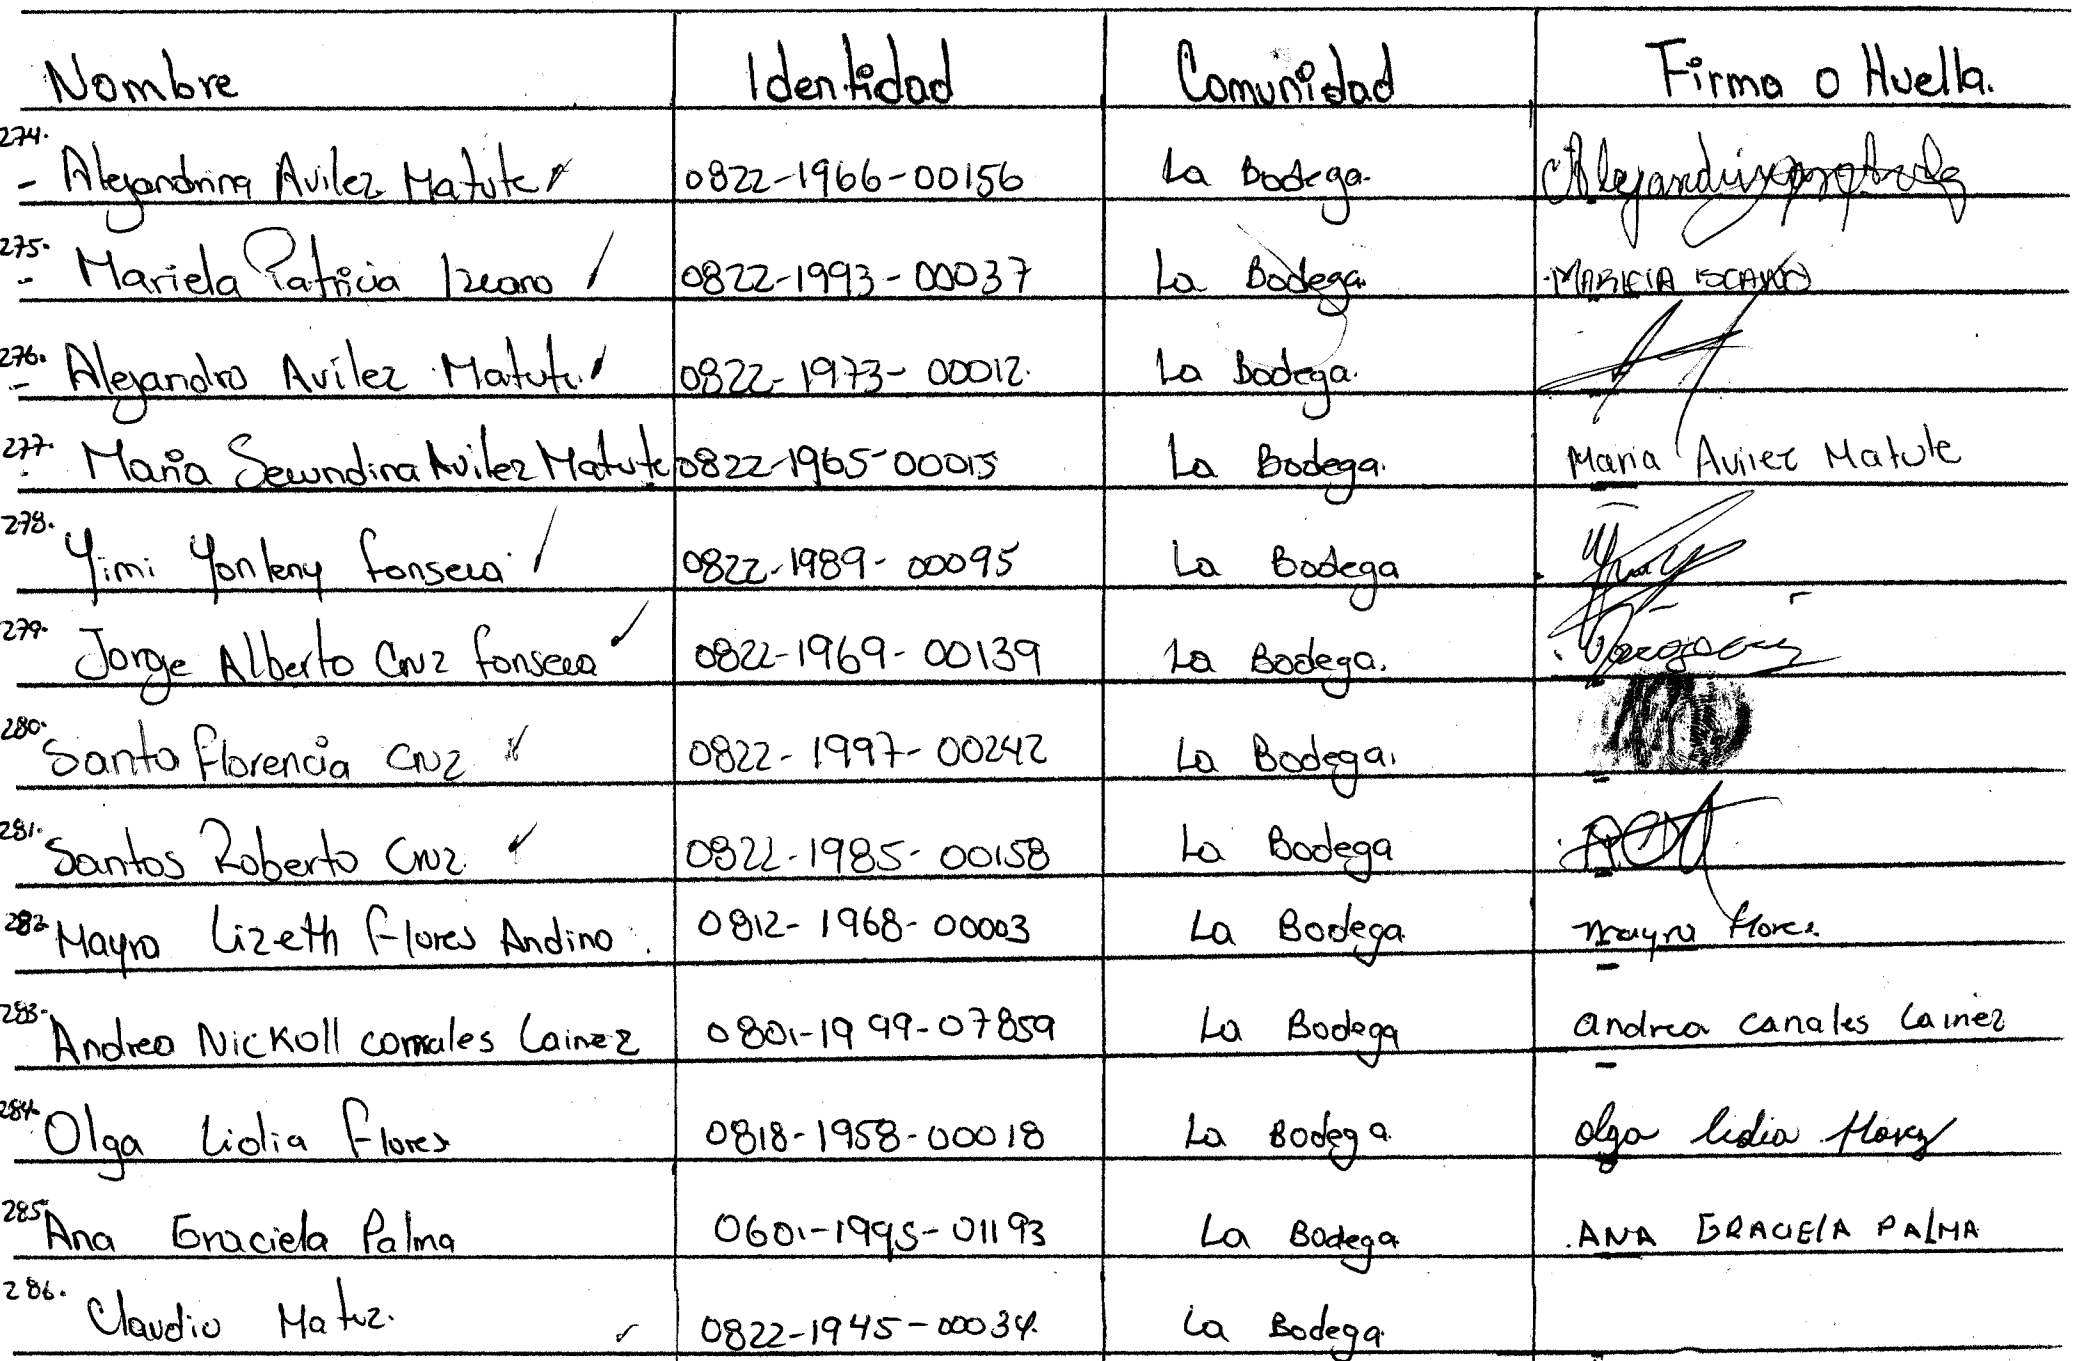 Nombre Identidad Comunidad Firma o Huella.
274. - Alejandrina Avilez Matute 0822-1966-00156 La Bodega.
275. - Mariela Patricia Izcano 0822-1993-00037 La Bodega.
276. - Alejandro Avilez Matute 0822-1973-00012. La Bodega.
277. - Maria Secundina Avilez Matute 0822-1965-00015 La Bodega. Maria Avilez Matute
278. Yimi Yonleny Fonseca 0822-1989-00095 La Bodega
279. Jorge Alberto Cruz Fonseca 0822-1969-00139 La Bodega.
280. Santa Florencia Cruz 0822-1997-00242 La Bodega.
281. Santos Roberto Cruz 0822-1985-00158 La Bodega
282. Mayra Lizeth Flores Andino. 0812-1968-00003 La Bodega mayra flores
283. Andrea Nickoll canales Lainez 0801-1999-07859 La Bodega andrea canales Lainez
284. Olga Lidia Flores 0818-1958-00018 La Bodega olga lidia flores
285. Ana Graciela Palma 0601-1995-01193 La Bodega ANA GRACIELA PALMA
286. Claudio Matuz. 0822-1945-00034. La Bodega